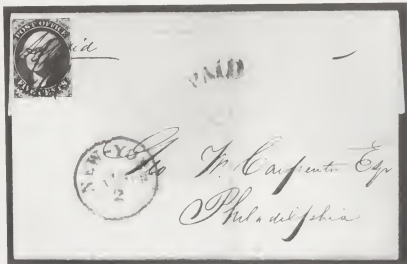 POST OFFICE
FIVE CENTS
PAID
NEW-YORK
2
Geo W. Carpenter Esqr
Philadelphia